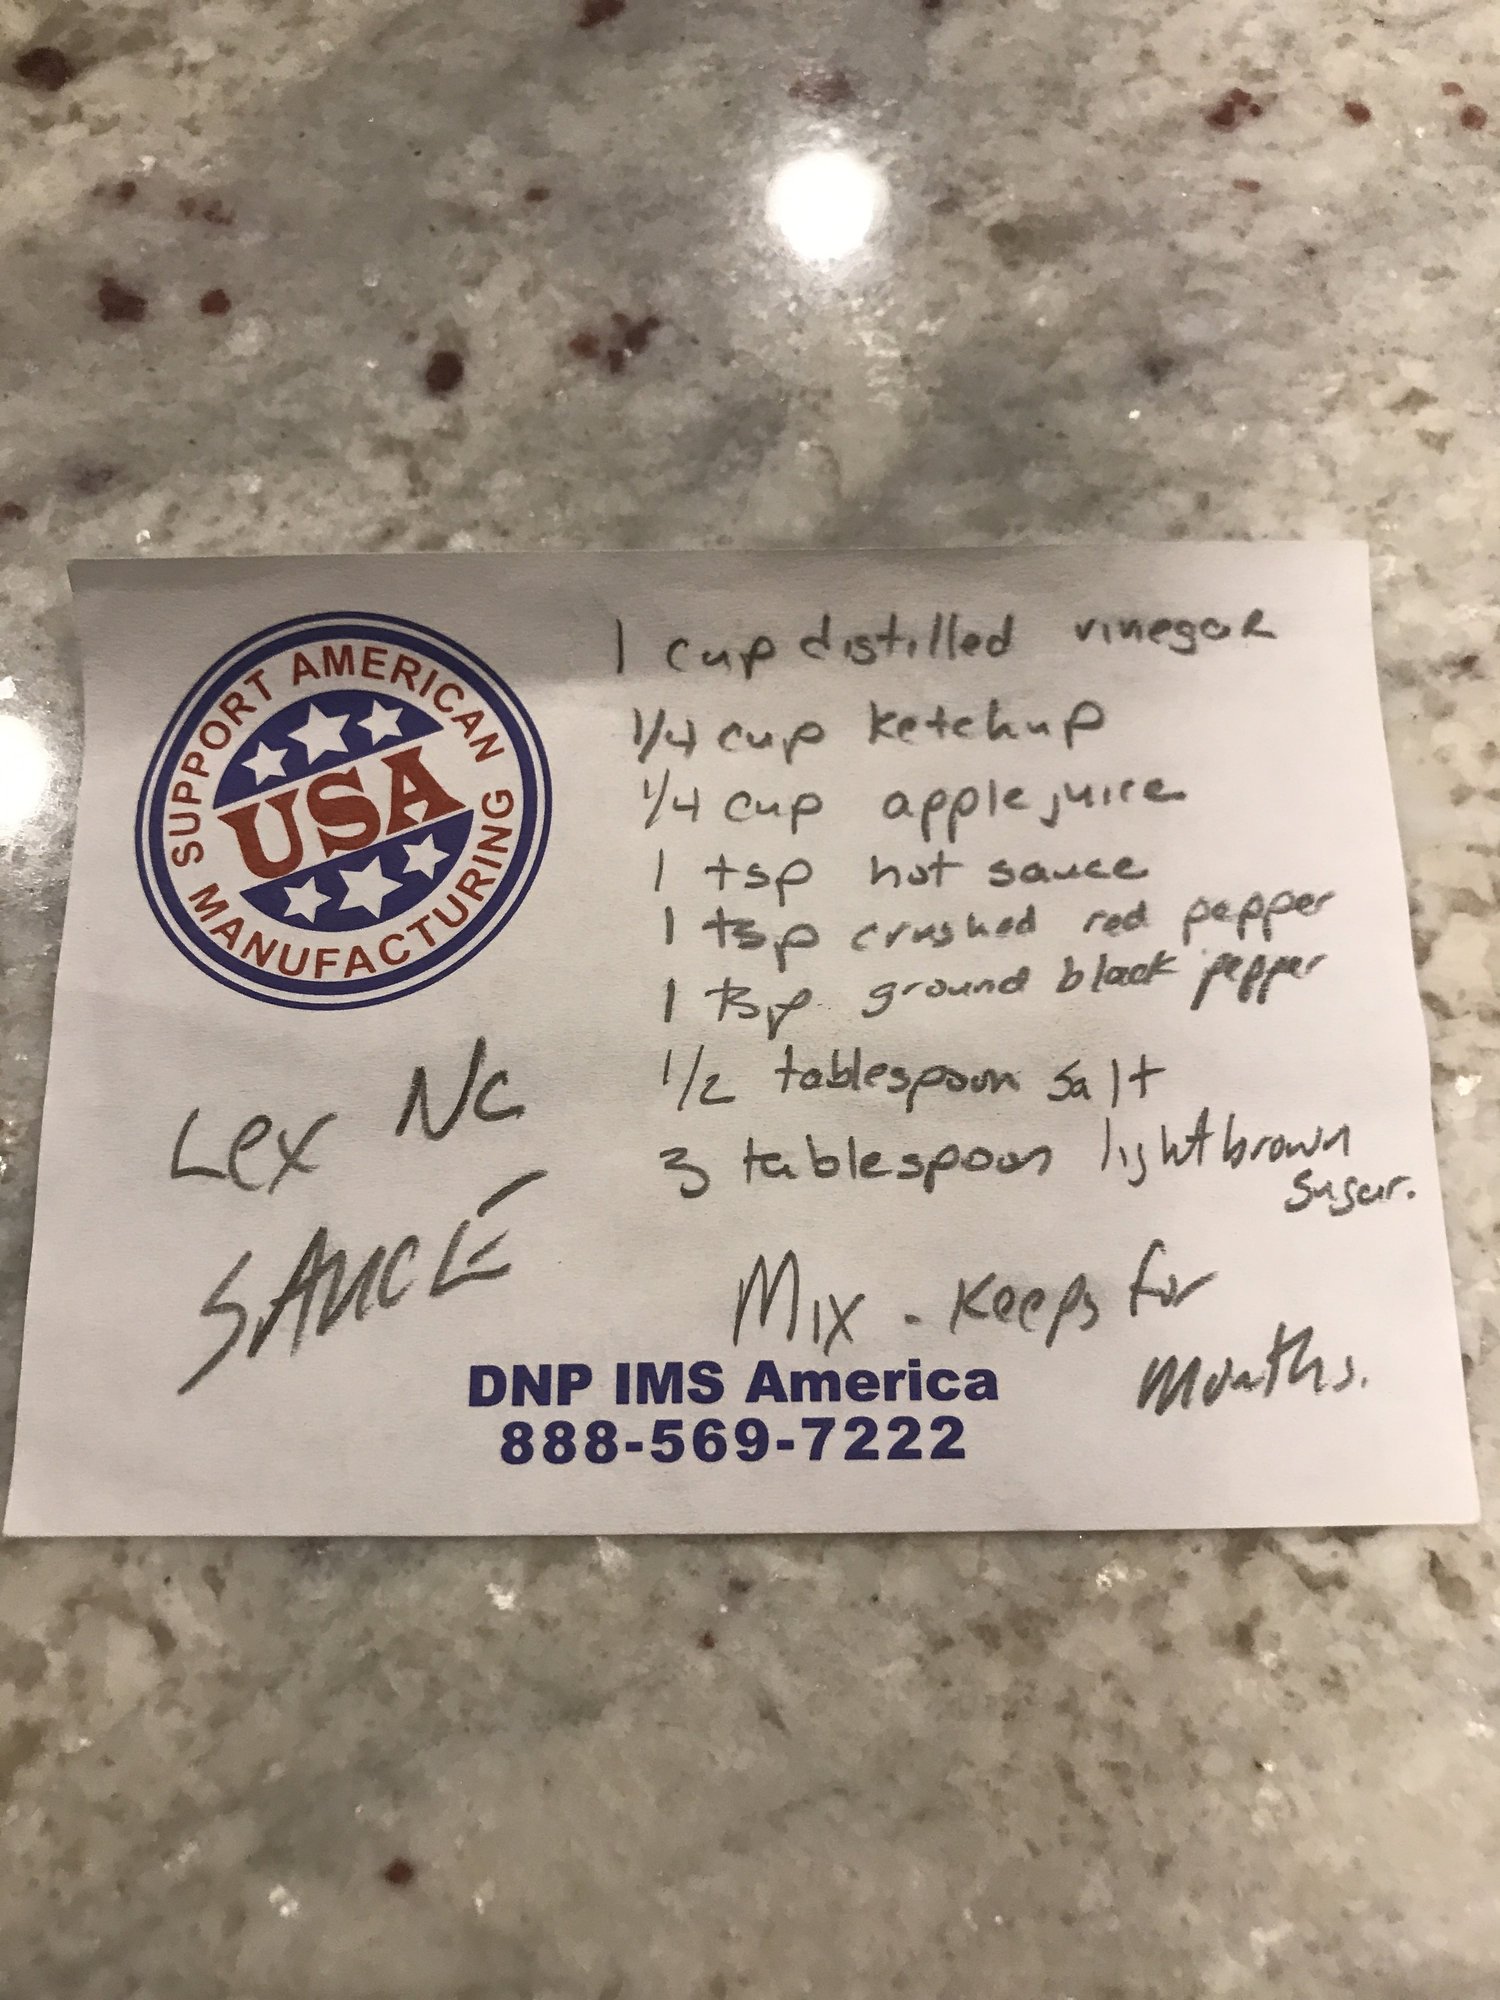 SUPPORT AMERICAN
USA
MANUFACTURING
Lex NC
SAUCE
1 cup distilled vinegar
1/4 cup ketchup
1/4 cup apple juice
1 tsp hot sauce
1 tsp crushed red pepper
1 tsp ground black pepper
1/2 tablespoon salt
3 tablespoon light brown
sugar.
Mix. Keeps for
months.
DNP IMS America
888-569-7222